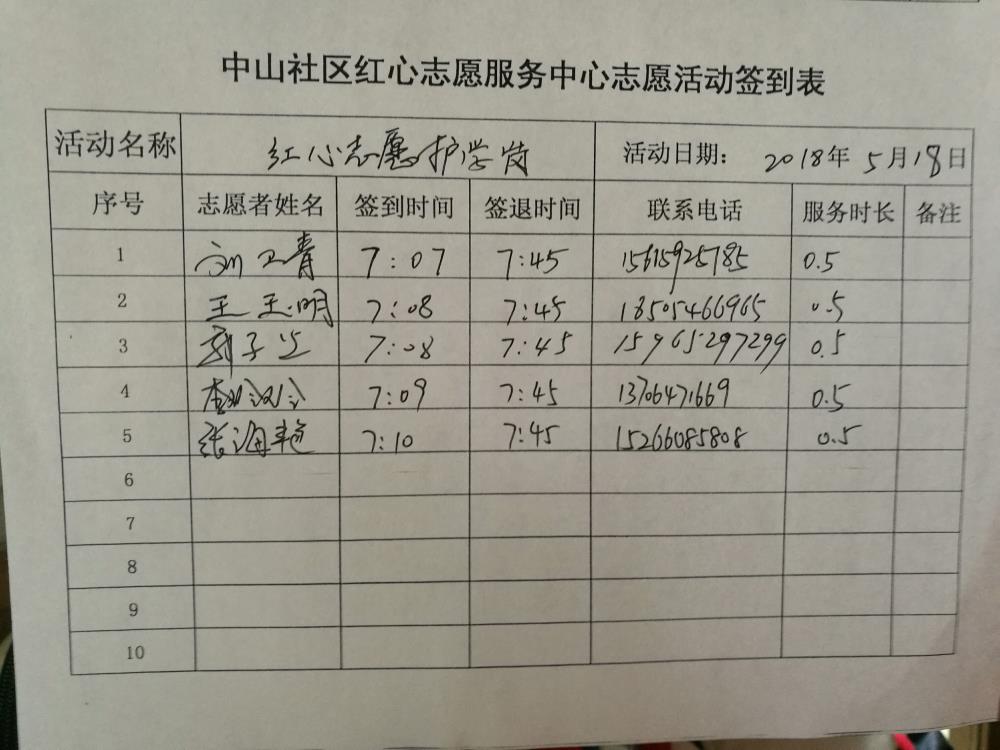 中山社区红心志愿服务中心志愿活动签到表
活动名称 红心志愿护学岗 活动日期： 2018年 5月18日
序号 志愿者姓名 签到时间 签退时间 联系电话 服务时长 备注
1 刘卫青 7:07 7:45 15615925785 0.5
2 王玉明 7:08 7:45 13505466965 0.5
3 7:08 7:45 15965297299 0.5
4 7:09 7:45 13706471669 0.5
5 张海艳 7:10 7:45 15266085808 0.5
6
7
8
9
10